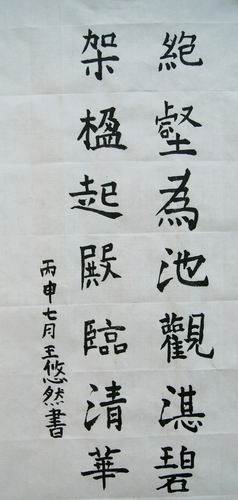 絶壑為池觀湛碧
架楹起殿臨清華
丙申七月王悠然書